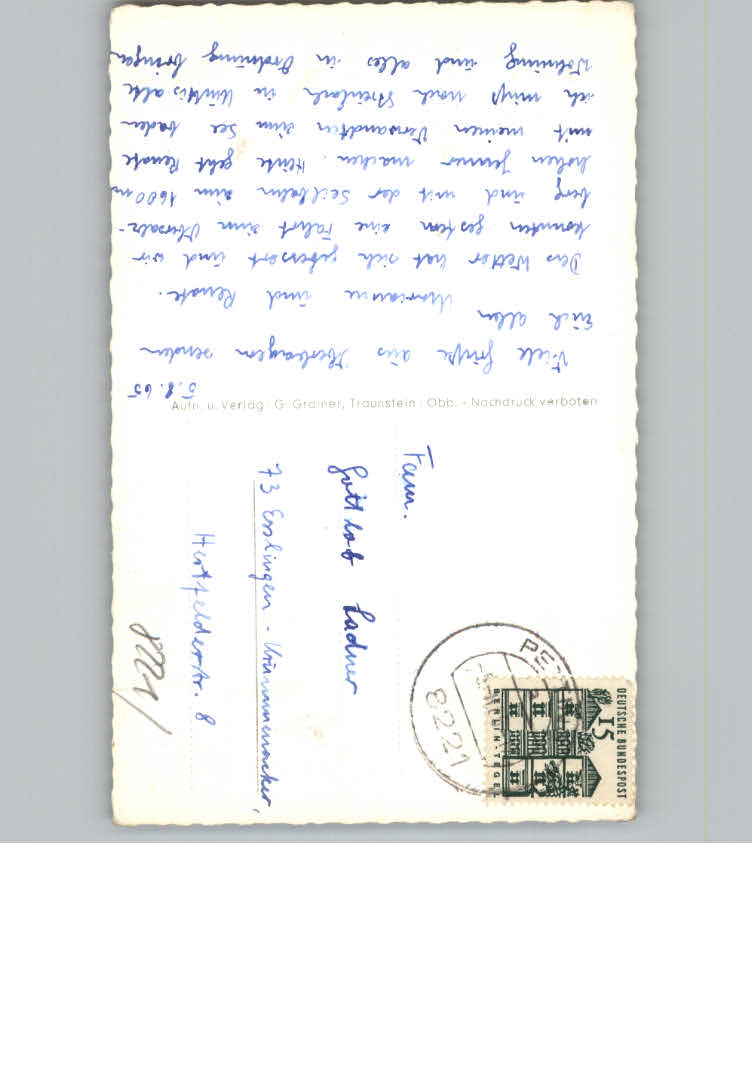 5.8.65
Viele Grüße aus senden
Euch allen
Marianne und Renate.
Das Wetter hat sich gebessert und wir
konnten gestern eine Fahrt zum Obersalz-
berg und mit der Seilbahn zum 1600 m
hohen Jenner machen. Heute geht Renate
mit meinen Verwandten zum See baden
ich muß nach in
Wohnung und alles in Ordnung bringen
Aufn. u. Verlag G. Grainer, Traunstein/Obb. - Nachdruck verboten
Fam.
Gottlob Ladner
73 Esslingen - Krummenacker,
Hertfelderstr. 8
8221
DEUTSCHE BUNDESPOST
15
BERLIN-TEGEL